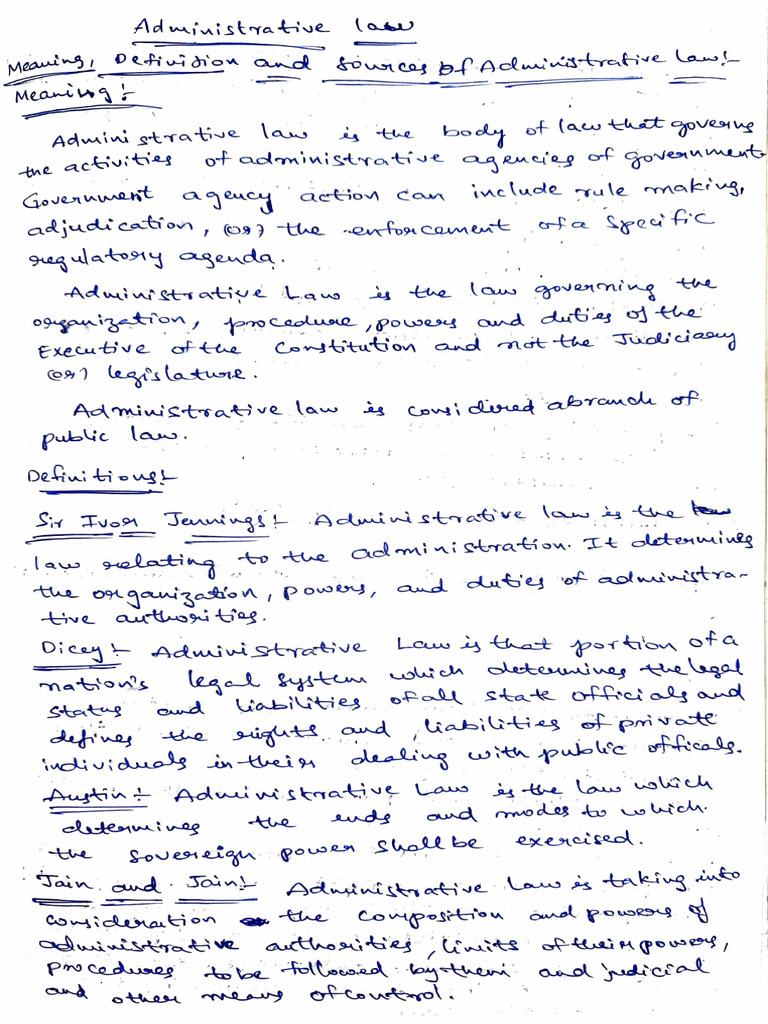 Administrative law
Meaning, Definision and sources of Administrative law:-
Meaning:-
Administrative law is the body of law that governs
the activities of administrative agencies of government.
Government agency action can include rule making,
adjudication, (or) the enforcement of a specific
regulatory agenda.
Administrative Law is the law governing the
organization, procedure, powers and duties of the
Executive of the Constitution and not the Judiciary
(or) legislature.
Administrative law is considered a branch of
public law.
Definitions:-
Sir Ivor Jennings:- Administrative law is the law
law relating to the administration. It determines
the organization, powers, and duties of administra-
tive authorities.
Dicey:- Administrative Law is that portion of a
nation's legal system which determines the legal
status and liabilities of all state officials and
defines the rights and liabilities of private
individuals in their dealing with public officals.
Austin:- Administrative Law is the law which
determines the ends and modes to which
the sovereign power shall be exercised.
Jain and Jain:- Administrative Law is taking into
consideration the composition and powers of
administrative authorities, limits of their powers,
procedures to be followed by them and judicial
and other means of control.